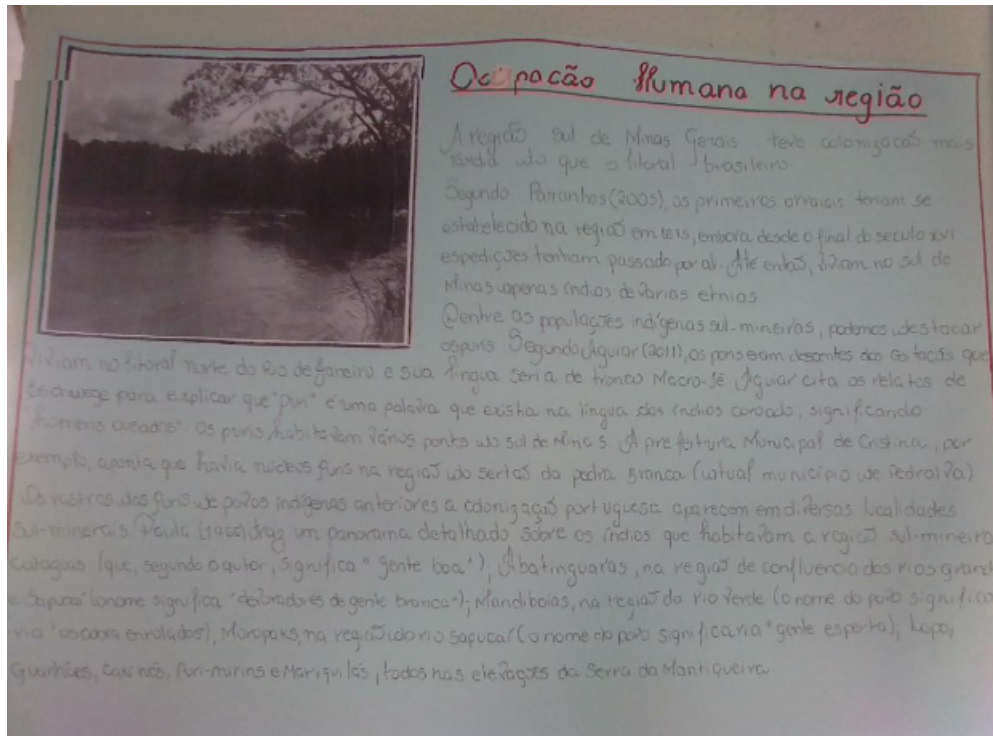 Ocupacão Humana na região
A região sul de Minas Gerais teve colonizacaõ mais
tardia do que o litoral brasileiro
Segundo Parranhos (2005), os primeiros arraiais teriam se
estabelecido na regiaõ em 1615, embora desde o final do seculo XVI
espediçoes tenham passado por ali. Até entaõ, viviam no sul de
Minas apenas índios de varias etnias
Dentre as populações indígenas sul-mineiras, podemos destacar
os puris Segundo Aguiar (2011), os puris eram descentes dos Goitacás que
viviam no litoral norte do Rio de Janeiro e sua língua seria de tronco Macro-Jê Aguiar cita os relatos de
Eschwege para explicar que "puri" é uma palavra que existia na língua dos índios coroado, significando
"homens ousados" Os puris habitavam vários pontos do sul de Minas A prefeitura Municipal de Cristina, por
exemplo, aponta que havia nucleos puris na regiaõ do sertaõ da pedra Branca (atual município de Pedralva)
Os rastros dos puris de povos indígenas anteriores a colonizaçaõ portuguesa aparecem em diversas localidades
sul-minerais Paula (1966) traz um panorama detalhado sobre os índios que habitavam a regiaõ sul-mineira
Cataguás (que, segundo o autor, significa "gente boa"), Abatinguaras, na regiaõ de confluencio dos rios grande
e Sapucaí (o nome significa de gente branca"); Mandiboias, na regiaõ do rio Verde (o nome do povo significa
ria "as cobra enrolados), Moropaks, na regiaõ do rio Sapucaí (o nome do povo significaria "gente esperta), Lopo,
Guanhães, Puri-mirins e Mariquitás, todos nas elevações da Serra da Mantiqueira